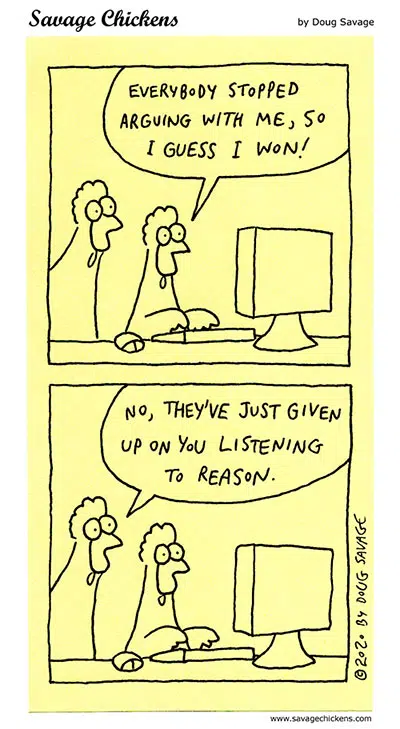 Savage Chickens
by Doug Savage
EVERYBODY STOPPED
ARGUING WITH ME, SO
I GUESS I WON!
NO, THEY'VE JUST GIVEN
UP ON YOU LISTENING
TO REASON.
©2020 BY DOUG SAVAGE
www.savagechickens.com